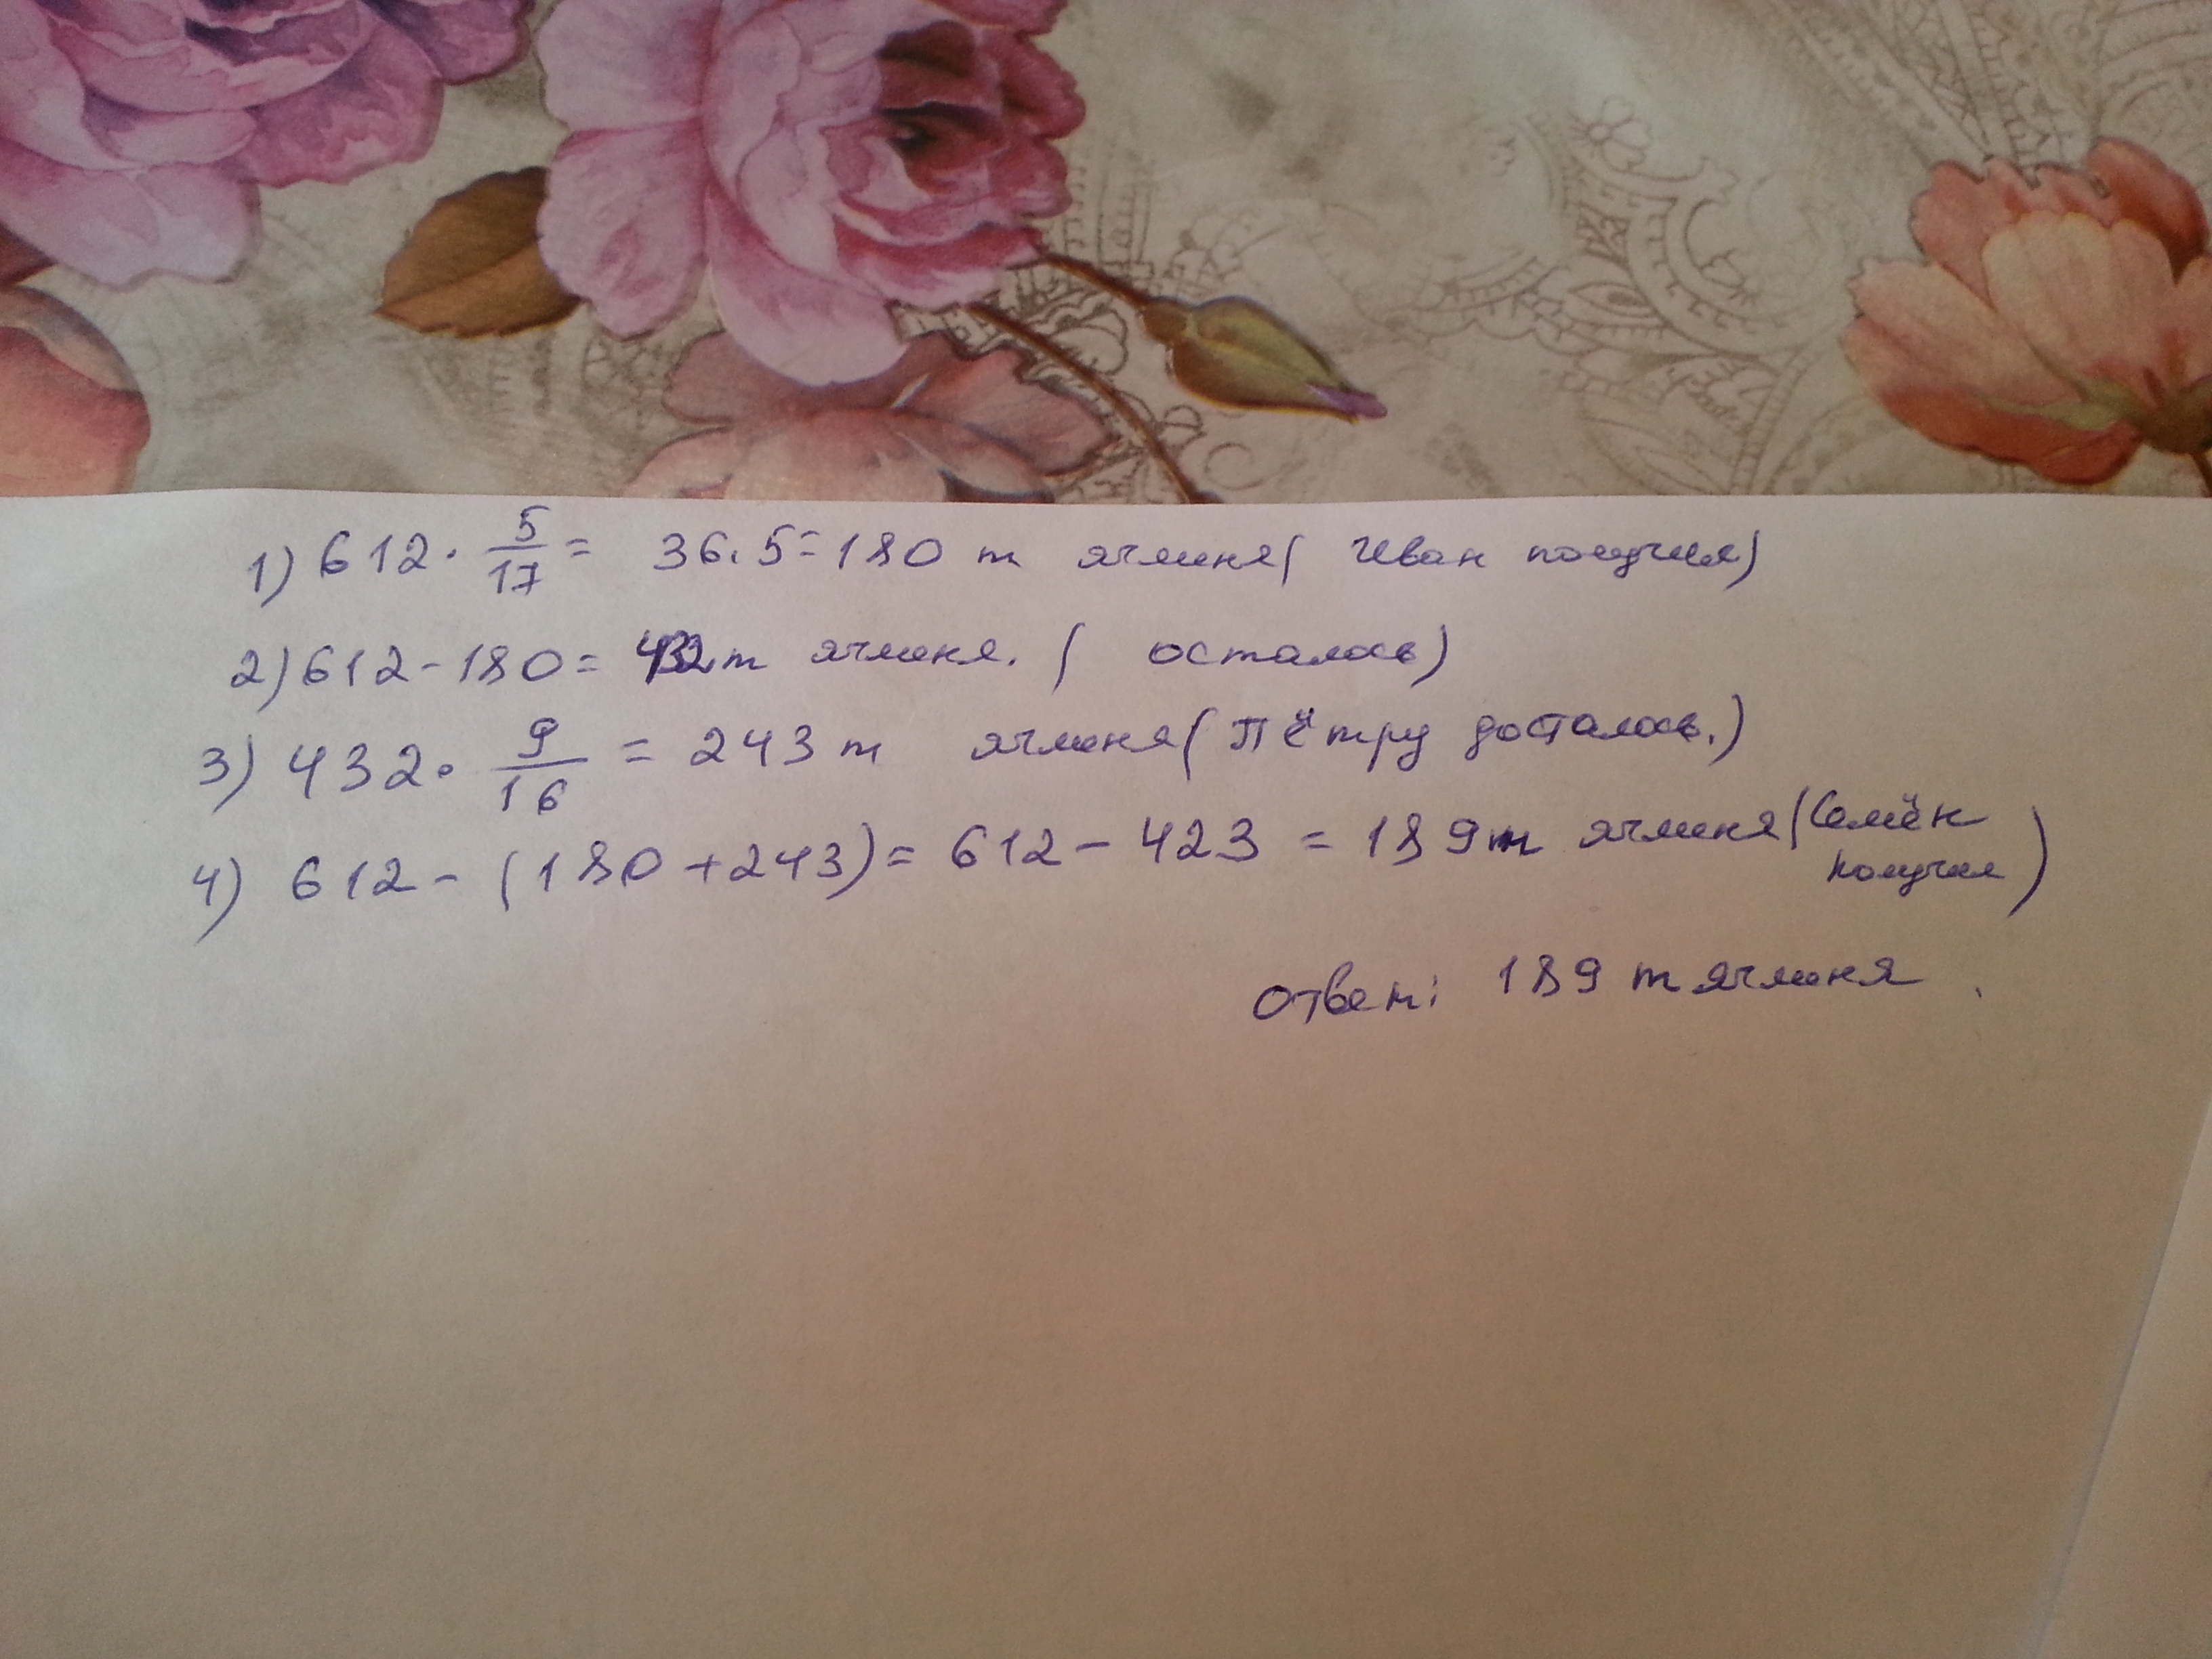 1) 612 · 5/17 = 36 · 5 = 180 т ячменя ( Иван получил)
2) 612 - 180 = 432 т ячменя. ( осталось)
3) 432 · 9/16 = 243 т ячменя ( Пётру досталось.)
4) 612 - (180 + 243) = 612 - 423 = 189 т ячменя (Семён
получил)
Ответ: 189 т ячменя.